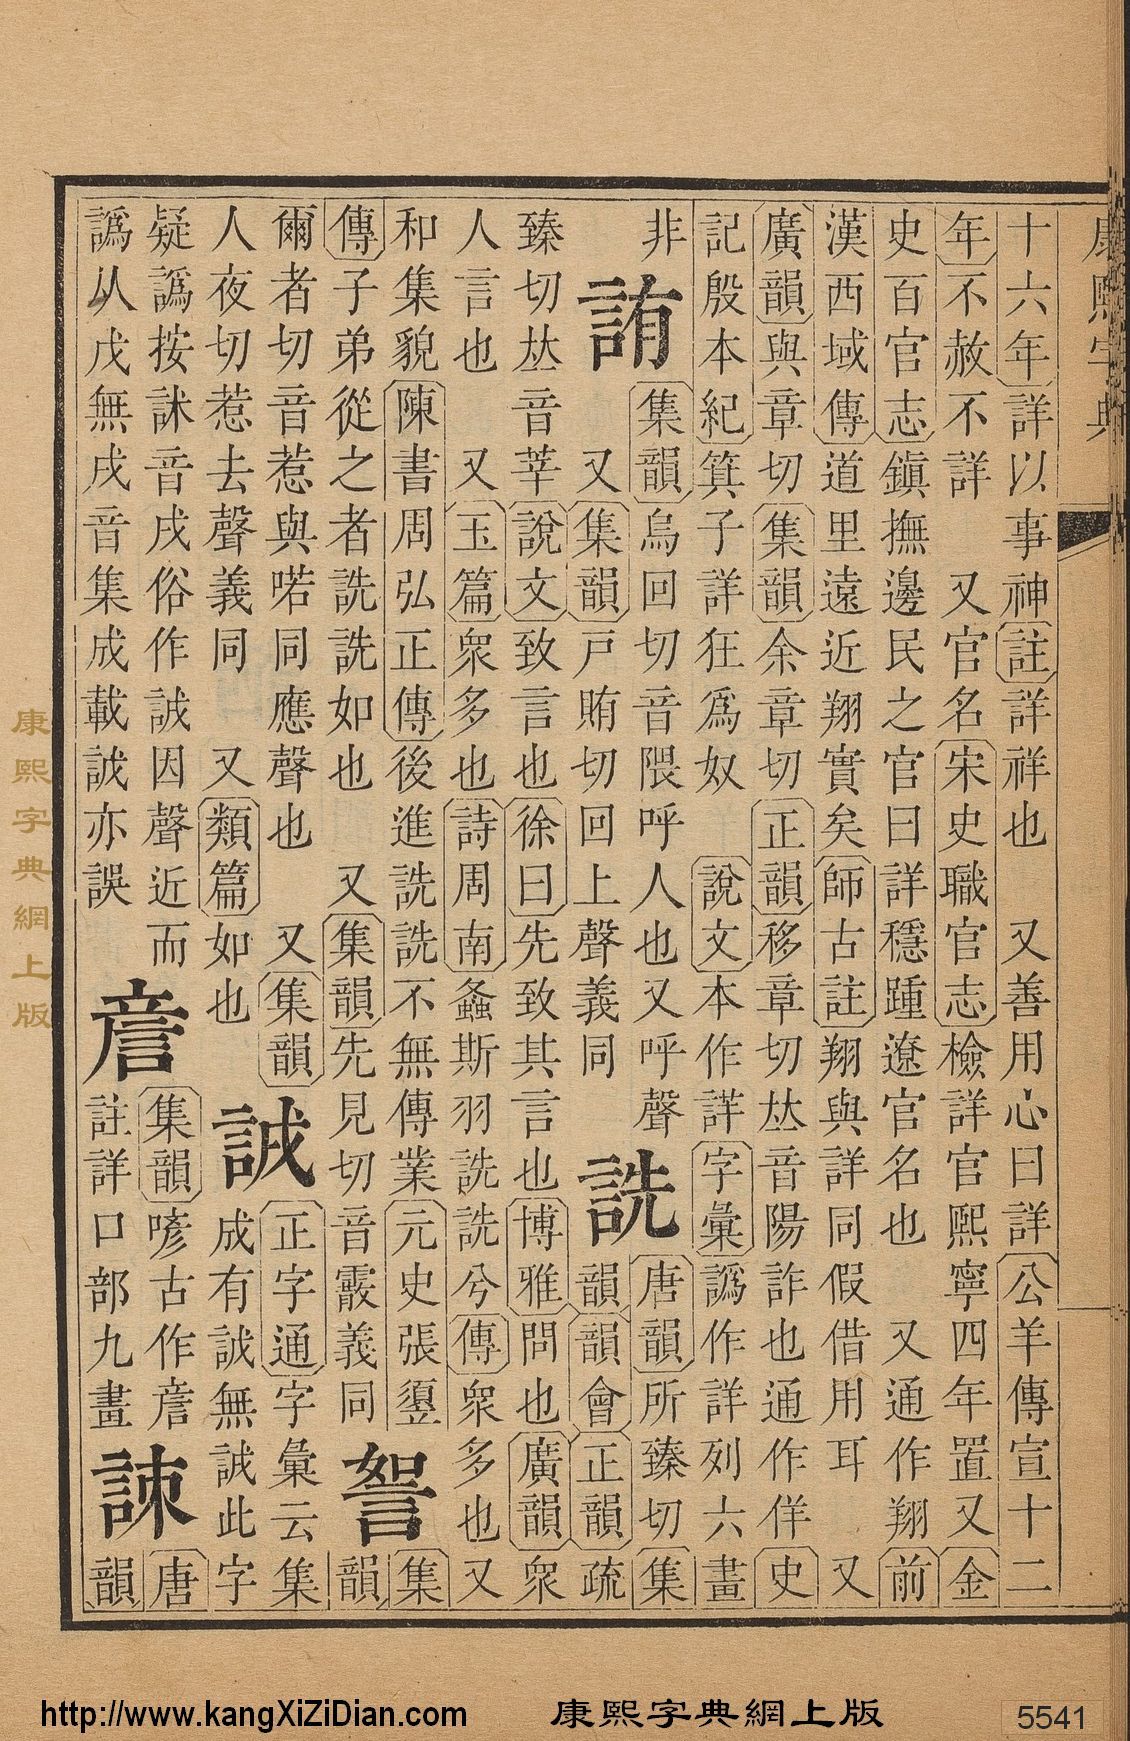 康熙字典
十六年詳以事神註詳祥也 又善用心曰詳公羊傳宣十二
年不赦不詳 又官名宋史職官志檢詳官熙寧四年置又金
史百官志鎭撫邊民之官曰詳穩踵遼官名也 又通作翔前
漢西域傳道里遠近翔實矣師古註翔與詳同假借用耳 又
廣韻與章切集韻余章切正韻移章切𠀤音陽詐也通作佯史
記殷本紀箕子詳狂爲奴 說文本作詳字彙譌作詳列六畫
非 詴 集韻烏回切音隈呼人也又呼聲
又集韻戸賄切回上聲義同
詵 唐韻所臻切集
韻韻會正韻疏
臻切𠀤音莘說文致言也徐曰先致其言也博雅問也廣韻衆
人言也 又玉篇衆多也詩周南螽斯羽詵詵兮傳衆多也又
和集貌陳書周弘正傳後進詵詵不無傳業元史張
傳子弟從之者詵詵如也 又集韻先見切音霰義同
集
韻
爾者切音惹與喏同應聲也 又集韻
人夜切惹去聲義同 又類篇如也
正字通字彙云集
成有無此字
疑譌按訹音戌俗作因聲近而
譌从戊無戌音集成載亦誤
集韻喭古作
註詳口部九畫
唐
韻
康熙字典網上版
http://www.kangXiZiDian.com 康熙字典網上版 5541